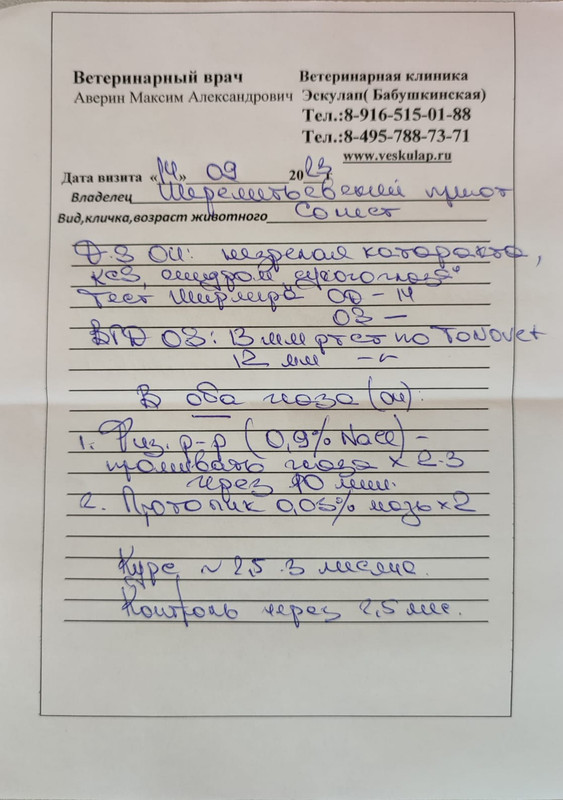 Ветеринарный врач
Аверин Максим Александрович
Ветеринарная клиника
Эскулап( Бабушкинская)
Тел.:8-916-515-01-88
Тел.:8-495-788-73-71
www.veskulap.ru
Дата визита «14» 09 2023
Владелец Шереметьевский приют
Вид,кличка,возраст животного
Д-з ОU: незрелая катаракта,
ККЗ, синдром „сухого глаза"
Тест Ширмера OD - 14
OS -
ВГД OS: 13 мм рт ст по TonoVet
12 мм
В оба глаза (OU):
1. Физ. р-р (0,9% NaCl) -
промывать глаза х 2-3
через 10 мин.
2. Протопик 0,03% мазь х 2
Курс ~ 2,5-3 месяца.
Контроль через 2,5 мес.